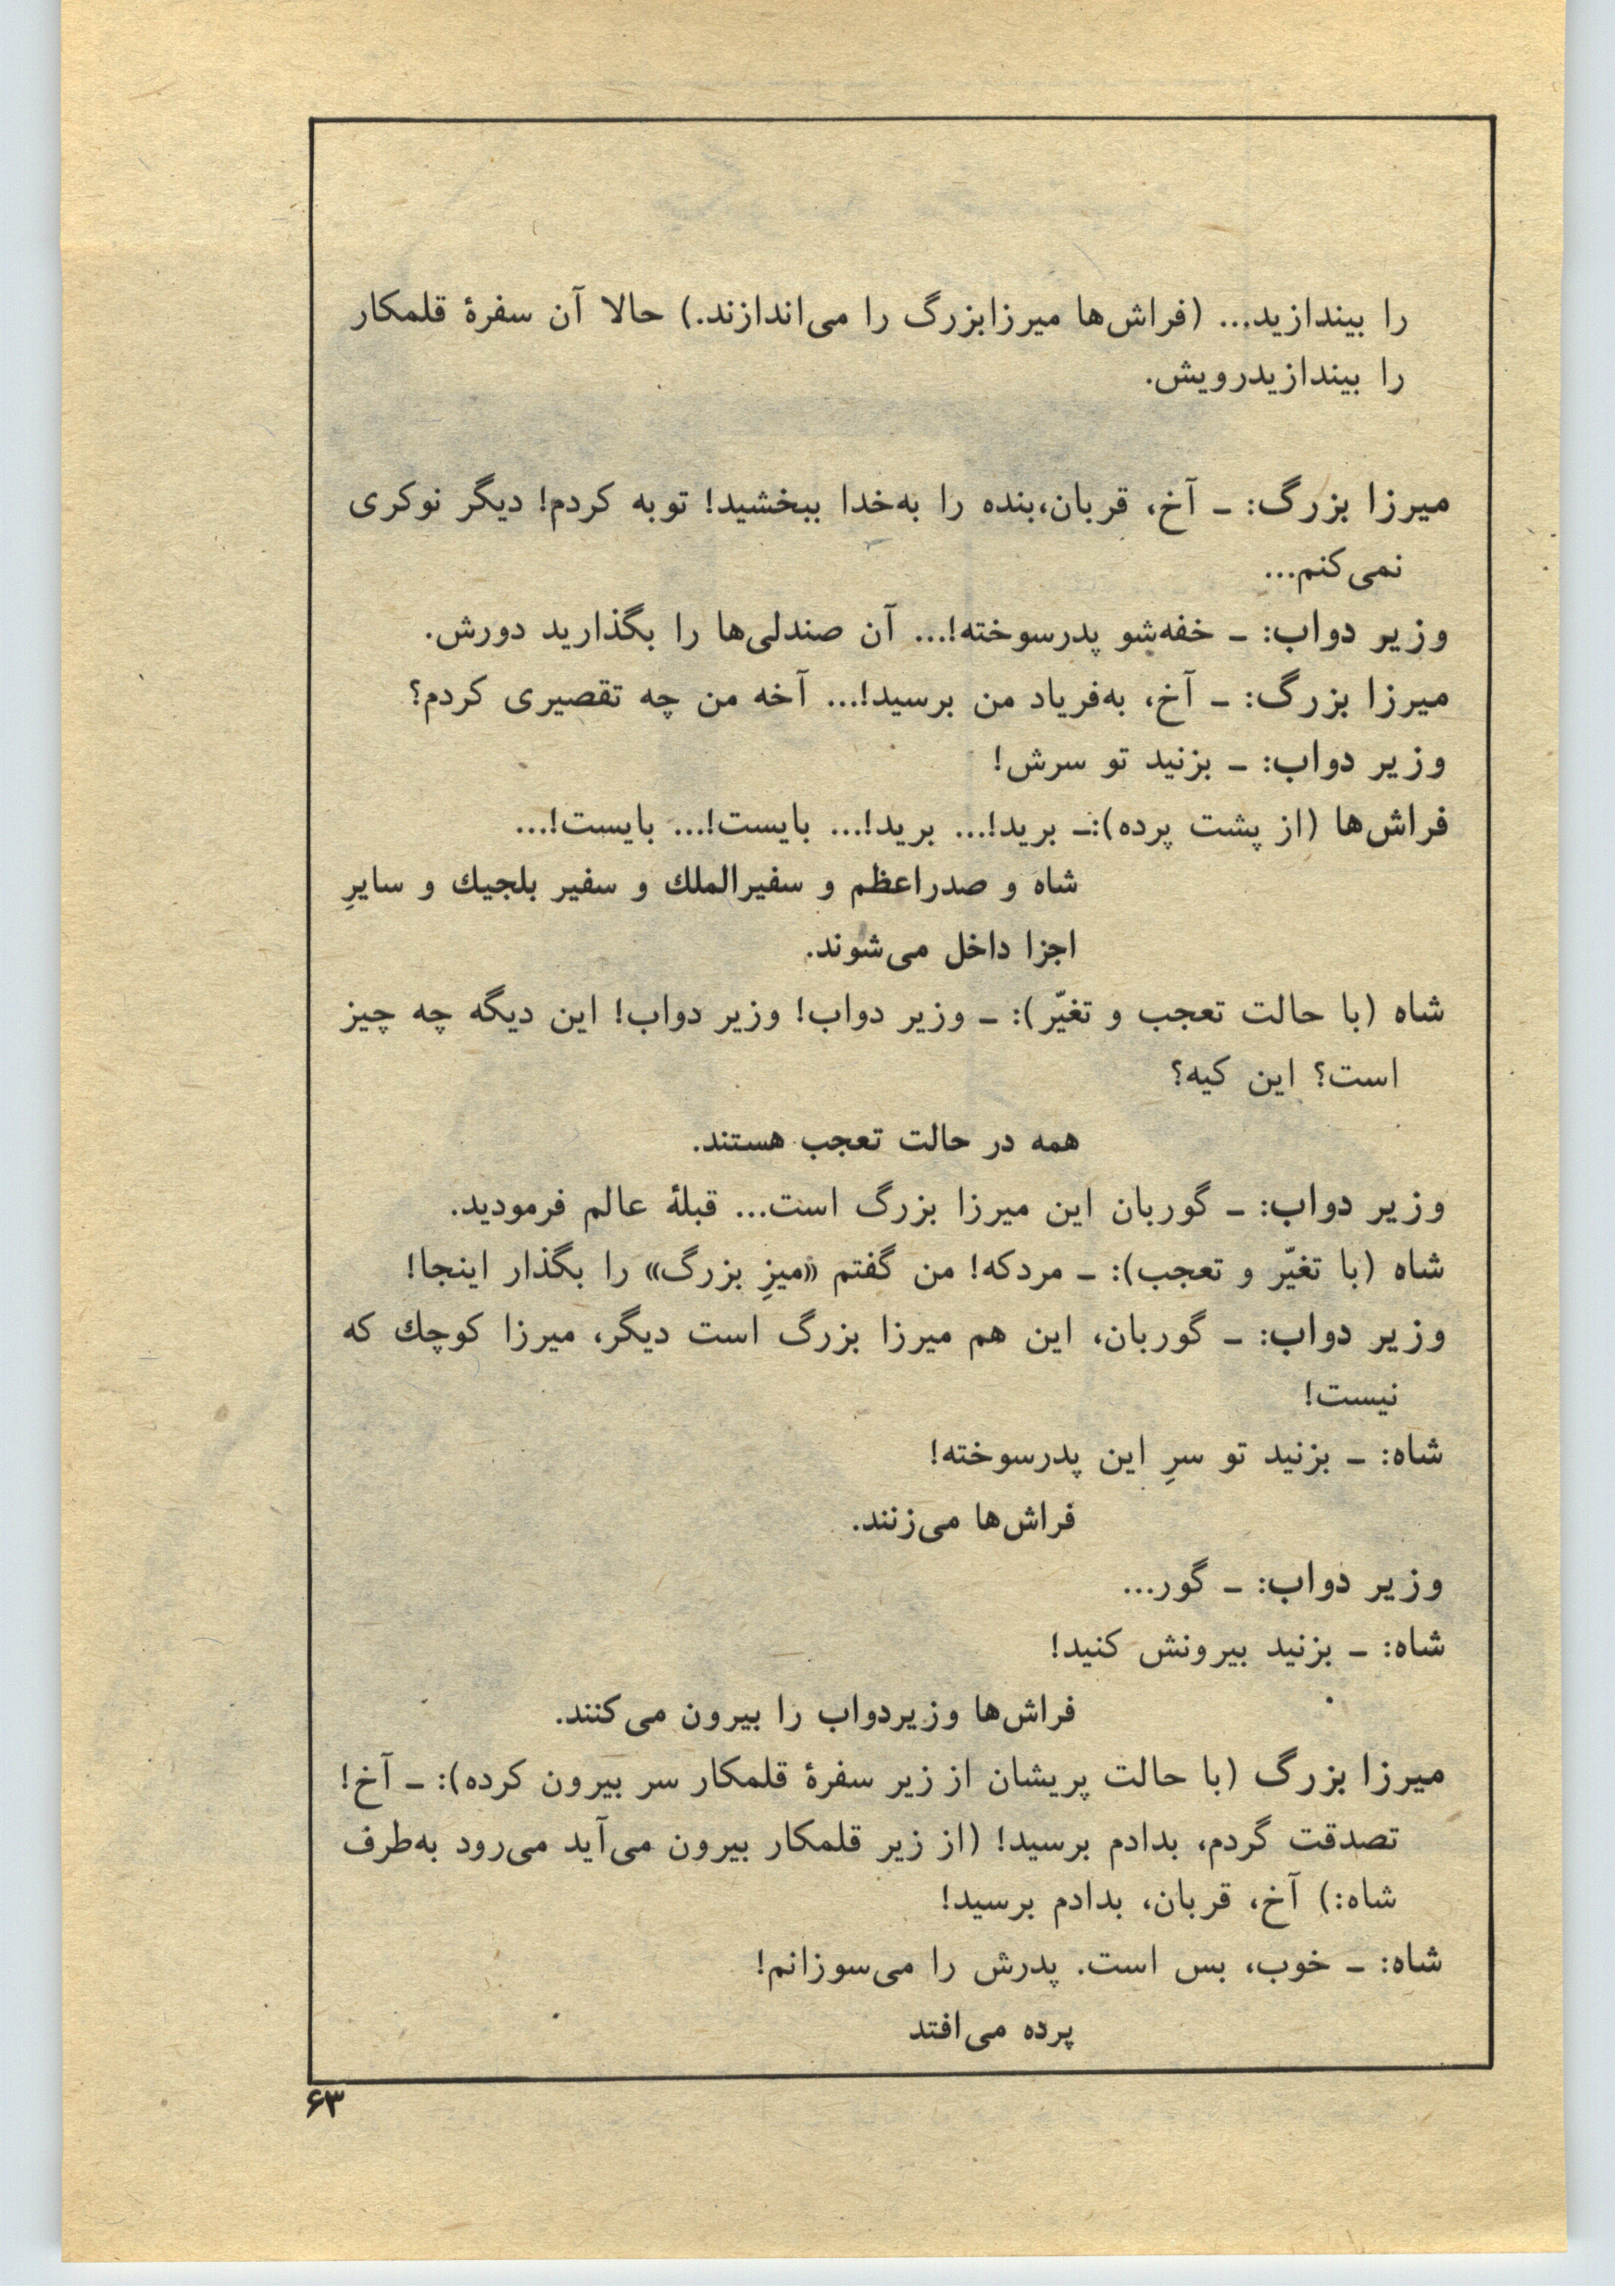 را بیندازید... (فراش‌ها میرزابزرگ را می‌اندازند.) حالا آن سفرهٔ قلمکار
را بیندازیدرویش.
میرزا بزرگ: ـ آخ، قربان،بنده را به‌خدا ببخشید! توبه کردم! دیگر نوکری
نمی‌کنم...
وزیر دواب: ـ خفه‌شو پدرسوخته!... آن صندلی‌ها را بگذارید دورش.
میرزا بزرگ: ـ آخ، به‌فریاد من برسید!... آخه من چه تقصیری کردم؟
وزیر دواب: ـ بزنید تو سرش!
فراش‌ها (از پشت پرده):ـ برید!... برید!... بایست!... بایست!...
شاه و صدراعظم و سفیرالملك و سفیر بلجیك و سایرِ
اجزا داخل می‌شوند.
شاه (با حالت تعجب و تغیّر): ـ وزیر دواب! وزیر دواب! این دیگه چه چیز
است؟ این کیه؟
همه در حالت تعجب هستند.
وزیر دواب: ـ گوربان این میرزا بزرگ است... قبلهٔ عالم فرمودید.
شاه (با تغیّر و تعجب): ـ مردکه! من گفتم «میزِ بزرگ» را بگذار اینجا!
وزیر دواب: ـ گوربان، این هم میرزا بزرگ است دیگر، میرزا کوچك که
نیست!
شاه: ـ بزنید تو سرِ این پدرسوخته!
فراش‌ها می‌زنند.
وزیر دواب: ـ گور...
شاه: ـ بزنید بیرونش کنید!
فراش‌ها وزیردواب را بیرون می‌کنند.
میرزا بزرگ (با حالت پریشان از زیر سفرهٔ قلمکار سر بیرون کرده): ـ آخ!
تصدقت گردم، بدادم برسید! (از زیر قلمکار بیرون می‌آید می‌رود به‌طرف
شاه:) آخ، قربان، بدادم برسید!
شاه: ـ خوب، بس است. پدرش را می‌سوزانم!
پرده می‌افتد
۶۳